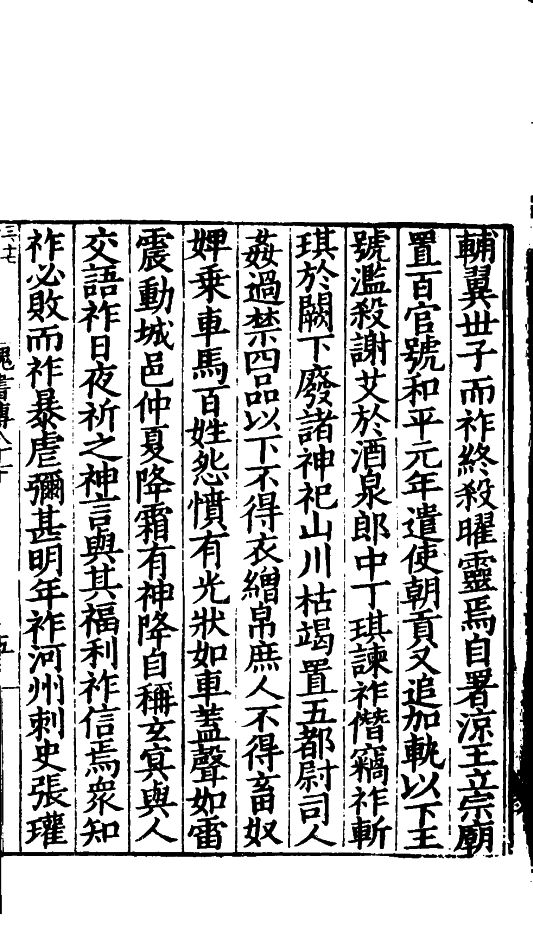 輔翼世子而祚終殺曜靈焉自署涼王立宗廟
置百官號和平元年遣使朝貢又追加軌以下王
號濫殺謝艾於酒泉郎中丁琪諫祚僭竊祚斬
琪於闕下廢諸神祀山川枯竭置五都尉司人
姦過禁四品以下不得衣繒帛庶人不得畜奴
婢乗車馬百姓怨憤有光狀如車蓋聲如雷
震動城邑仲夏降霜有神降自稱玄冥與人
交語祚日夜祈之神言與其福利祚信焉衆知
祚必敗而祚暴虐彌甚明年祚河州刺史張瓘
三七
魏書傳八十七
五